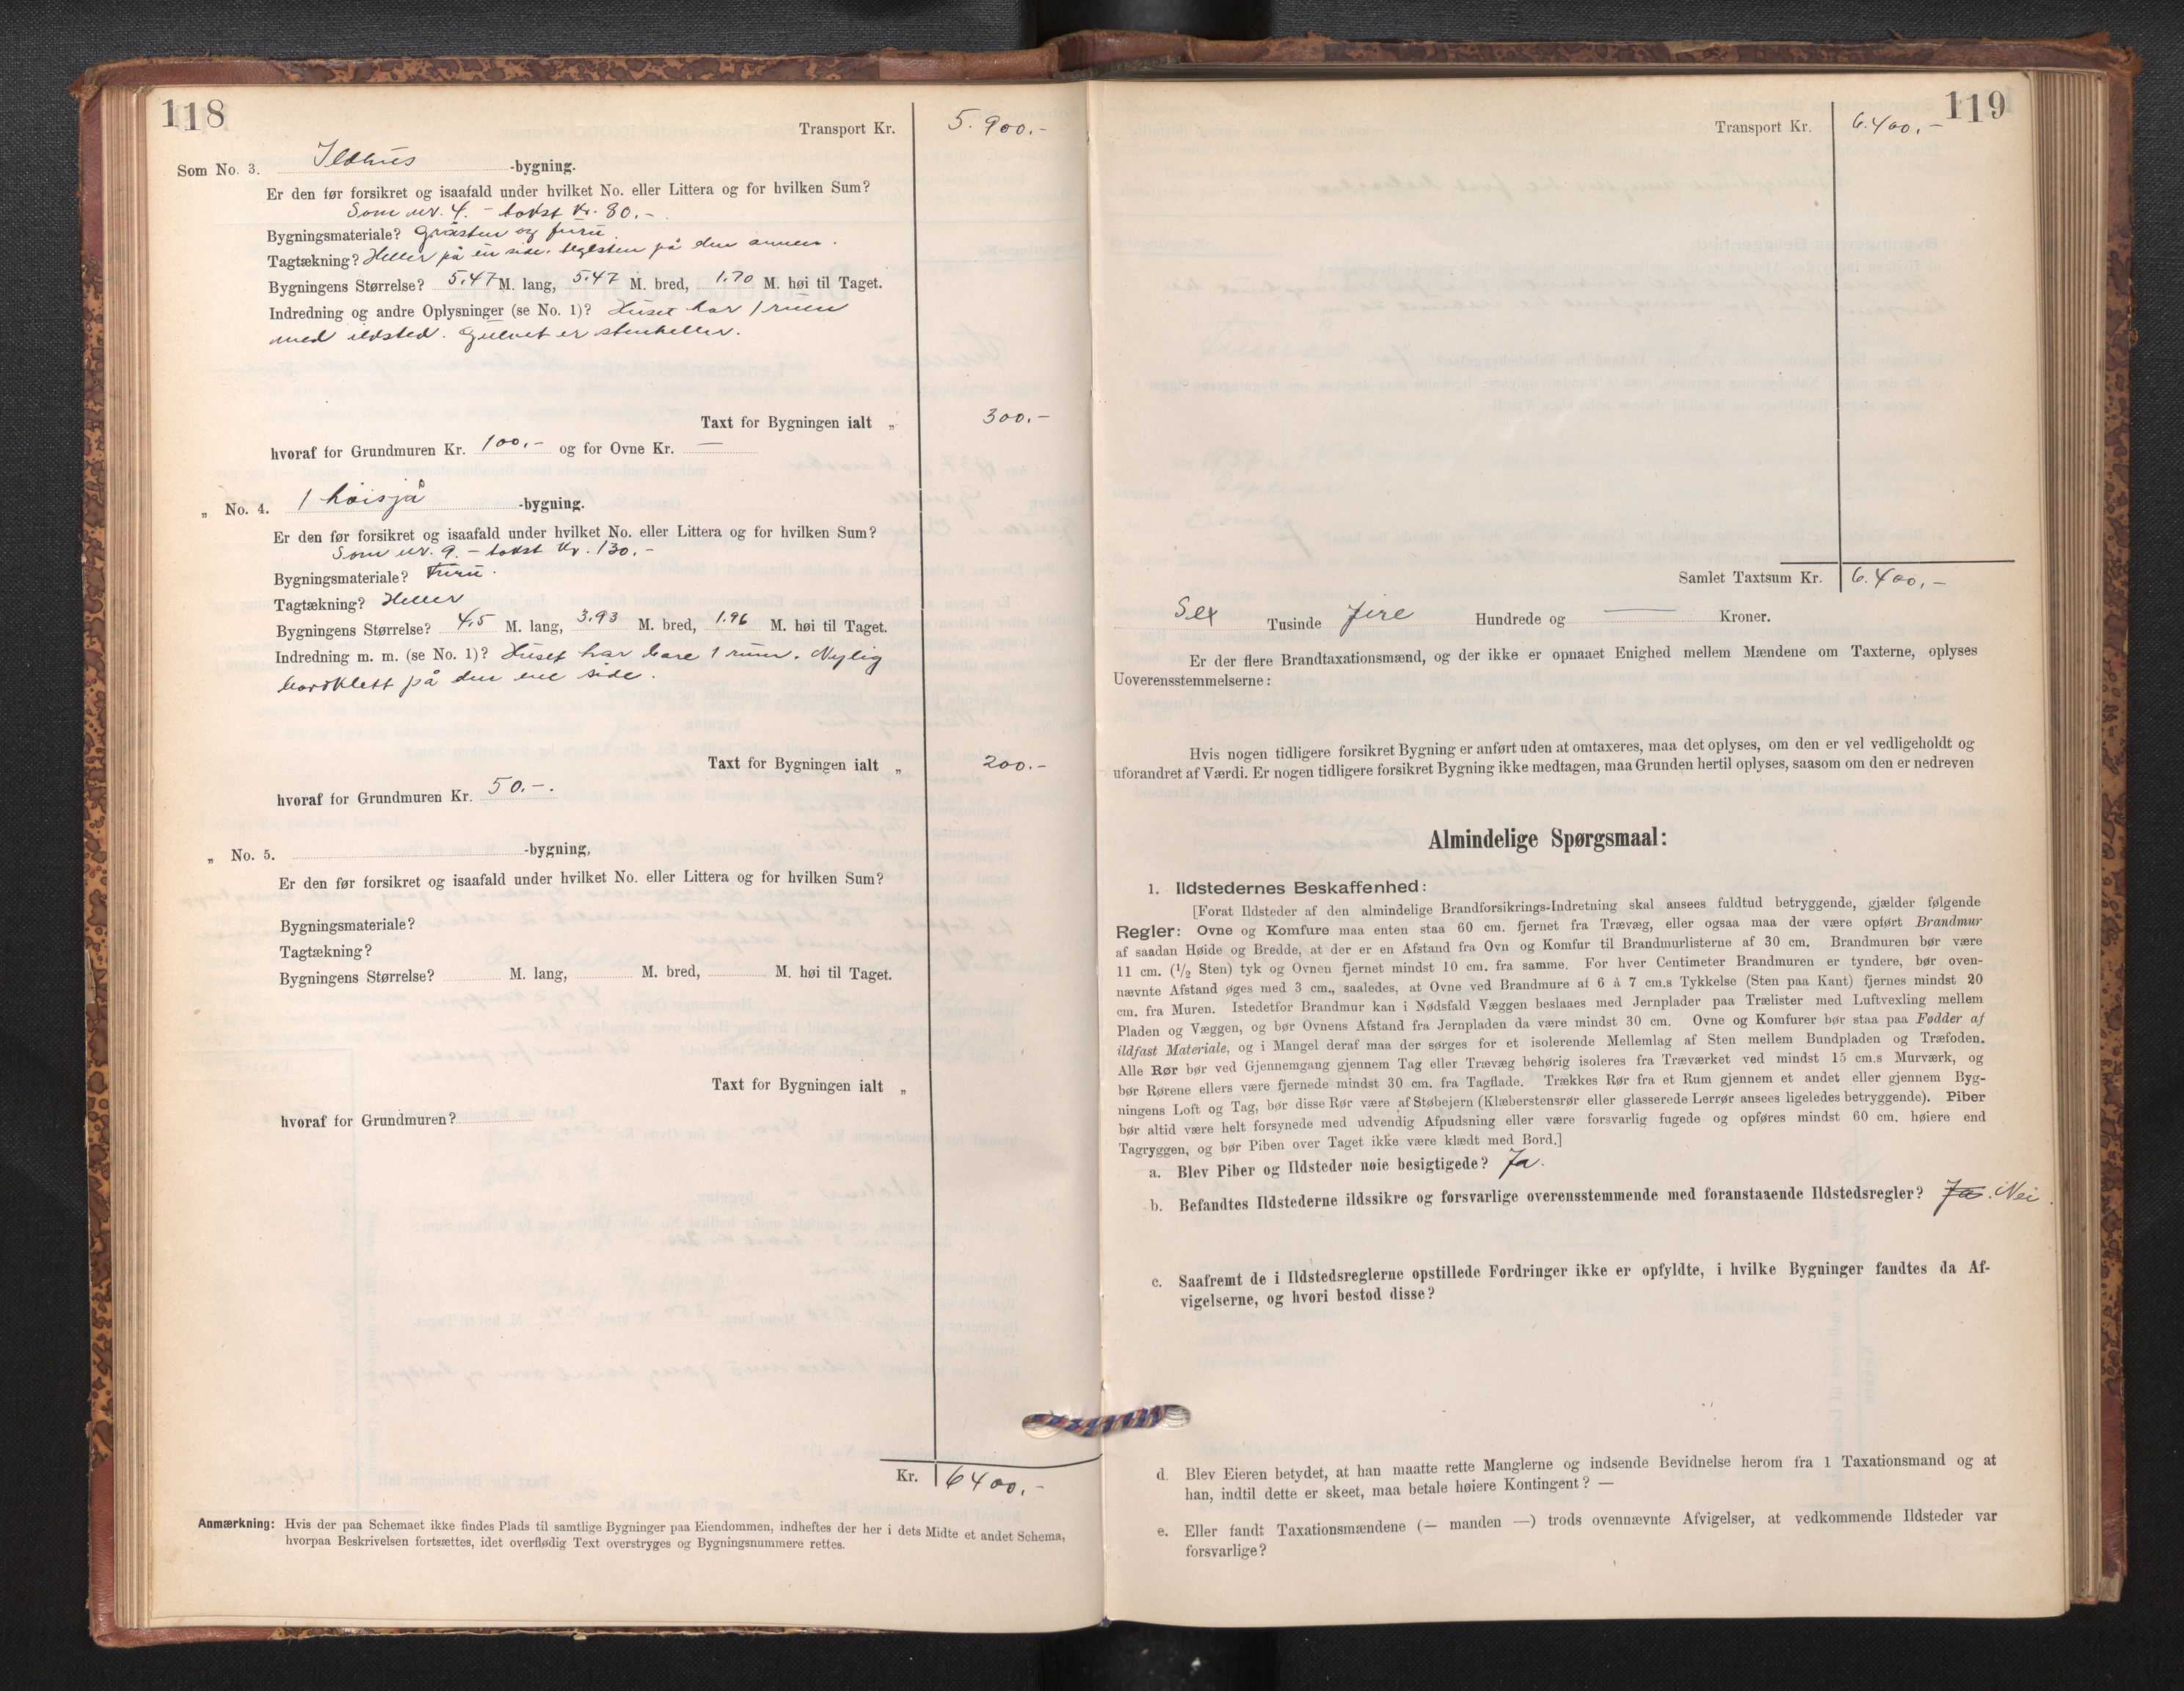 118
Transport Kr. 5.900.-
Som No. 3. Ildhus -bygning.
Er den før forsikret og isaafald under hvilket No. eller Littera og for hvilken Sum?
Som nr. 4. - takst kr. 80.-
Bygningsmateriale? Gråsten og furu.
Tagtækning? Heller på en side, teglsten på den annen.
Bygningens Størrelse? 5.47 M. lang, 5.47 M. bred, 1.70 M. høi til Taget.
Indredning og andre Oplysninger (se No. 1)? Huset har 1 rum
med ildsted. Gulvet er stenheller.
Taxt for Bygningen ialt „ 300.-
hvoraf for Grundmuren Kr. 100.- og for Ovne Kr. —
„ No. 4. 1 høisjå -bygning.
Er den før forsikret og isaafald under hvilket No. eller Littera og for hvilken Sum?
Som nr. 9. - takst kr. 130.-
Bygningsmateriale? Furu.
Tagtækning? Heller
Bygningens Størrelse? 4.5 M. lang, 3.93 M. bred, 1.96 M. høi til Taget.
Indredning m. m. (se No. 1)? Huset har bare 1 rum. Nylig
bordklett på den ene side.
Taxt for Bygningen ialt „ 200.-
hvoraf for Grundmuren Kr. 50.-.
„ No. 5. -bygning,
Er den før forsikret og isaafald under hvilket No. eller Littera og for hvilken Sum?
Bygningsmateriale?
Tagtækning?
Bygningens Størrelse? M. lang, M. bred, M. høi til Taget.
Taxt for Bygningen ialt „
hvoraf for Grundmuren?
Kr. 6400.-
Anmærkning: Hvis der paa Schemaet ikke findes Plads til samtlige Bygninger paa Eiendommen, indheftes der her i dets Midte et andet Schema,
hvorpaa Beskrivelsen fortsættes, idet overflødig Text overstryges og Bygningsnummere rettes.
119
Transport Kr. 6.400.-
Samlet Taxtsum Kr. 6.400.-
Sex Tusinde fire Hundrede og — Kroner.
Er der flere Brandtaxationsmænd, og der ikke er opnaaet Enighed mellem Mændene om Taxterne, oplyses
Uoverensstemmelserne:
Hvis nogen tidligere forsikret Bygning er anført uden at omtaxeres, maa det oplyses, om den er vel vedligeholdt og
uforandret af Værdi. Er nogen tidligere forsikret Bygning ikke medtagen, maa Grunden hertil oplyses, saasom om den er nedreven
Almindelige Spørgsmaal:
1. Ildstedernes Beskaffenhed:
[Forat Ildsteder af den almindelige Brandforsikrings-Indretning skal ansees fuldtud betryggende, gjælder følgende
Regler: Ovne og Komfure maa enten staa 60 cm. fjernet fra Trævæg, eller ogsaa maa der være opført Brandmur
af saadan Høide og Bredde, at der er en Afstand fra Ovn og Komfur til Brandmurlisterne af 30 cm. Brandmuren bør være
11 cm. (1/2 Sten) tyk og Ovnen fjernet mindst 10 cm. fra samme. For hver Centimeter Brandmuren er tyndere, bør oven-
nævnte Afstand øges med 3 cm., saaledes, at Ovne ved Brandmure af 6 à 7 cm.s Tykkelse (Sten paa Kant) fjernes mindst 20
cm. fra Muren. Istedetfor Brandmur kan i Nødsfald Væggen beslaaes med Jernplader paa Trælister med Luftvexling mellem
Pladen og Væggen, og bør Ovnens Afstand fra Jernpladen da være mindst 30 cm. Ovne og Komfurer bør staa paa Fødder af
ildfast Materiale, og i Mangel deraf maa der sørges for et isolerende Mellemlag af Sten mellem Bundpladen og Træfoden.
Alle Rør bør ved Gjennemgang gjennem Tag eller Trævæg behørig isoleres fra Træværket ved mindst 15 cm.s Murværk, og
bør Rørene ellers være fjernede mindst 30 cm. fra Tagflade. Trækkes Rør fra et Rum gjennem et andet eller gjennem Byg-
ningens Loft og Tag, bør disse Rør være af Støbejern (Klæberstensrør eller glasserede Lerrør ansees ligeledes betryggende). Piber
bør altid være helt forsynede med udvendig Afpudsning eller være forsvarlig fugede og opføres mindst 60 cm. høiere end
Tagryggen, og bør Piben over Taget ikke være klædt med Bord.]
a. Blev Piber og Ildsteder nøie besigtigede? Ja.
b. Befandtes Ildstederne ildssikre og forsvarlige overensstemmende med foranstaaende Ildstedsregler? Ja. Nei.
c. Saafremt de i Ildstedsreglerne opstillede Fordringer ikke er opfyldte, i hvilke Bygninger fandtes da Af-
vigelserne, og hvori bestod disse?
d. Blev Eieren betydet, at han maatte rette Manglerne og indsende Bevidnelse herom fra 1 Taxationsmand og at
han, indtil dette er skeet, maa betale høiere Kontingent? —
e. Eller fandt Taxationsmændene (— manden —) trods ovennævnte Afvigelser, at vedkommende Ildsteder var
forsvarlige?